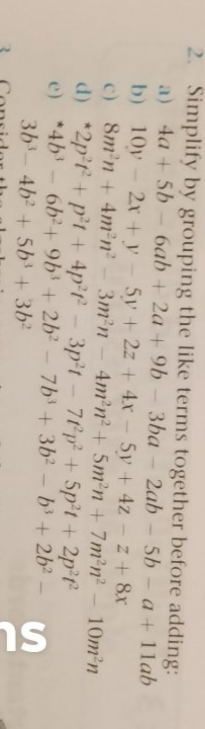 2. Simplify by grouping the like terms together before adding:
a) 4a + 5b − 6ab + 2a + 9b − 3ba − 2ab − 5b − a + 11ab
b) 10y − 2x + y − 5y + 2z + 4x − 5y + 4z − z + 8x
c) 8m²n + 4m²n² − 3m²n − 4m²n² + 5m²n + 7m²n² − 10m²n
d) *2p²t² + p²t + 4p²t² − 3p²t − 7t²p² + 5p²t + 2p²t²
e) *4b³ − 6b² + 9b³ + 2b² − 7b³ + 3b² − b³ + 2b² −
3b³ − 4b² + 5b³ + 3b²
3. Consider the
ns